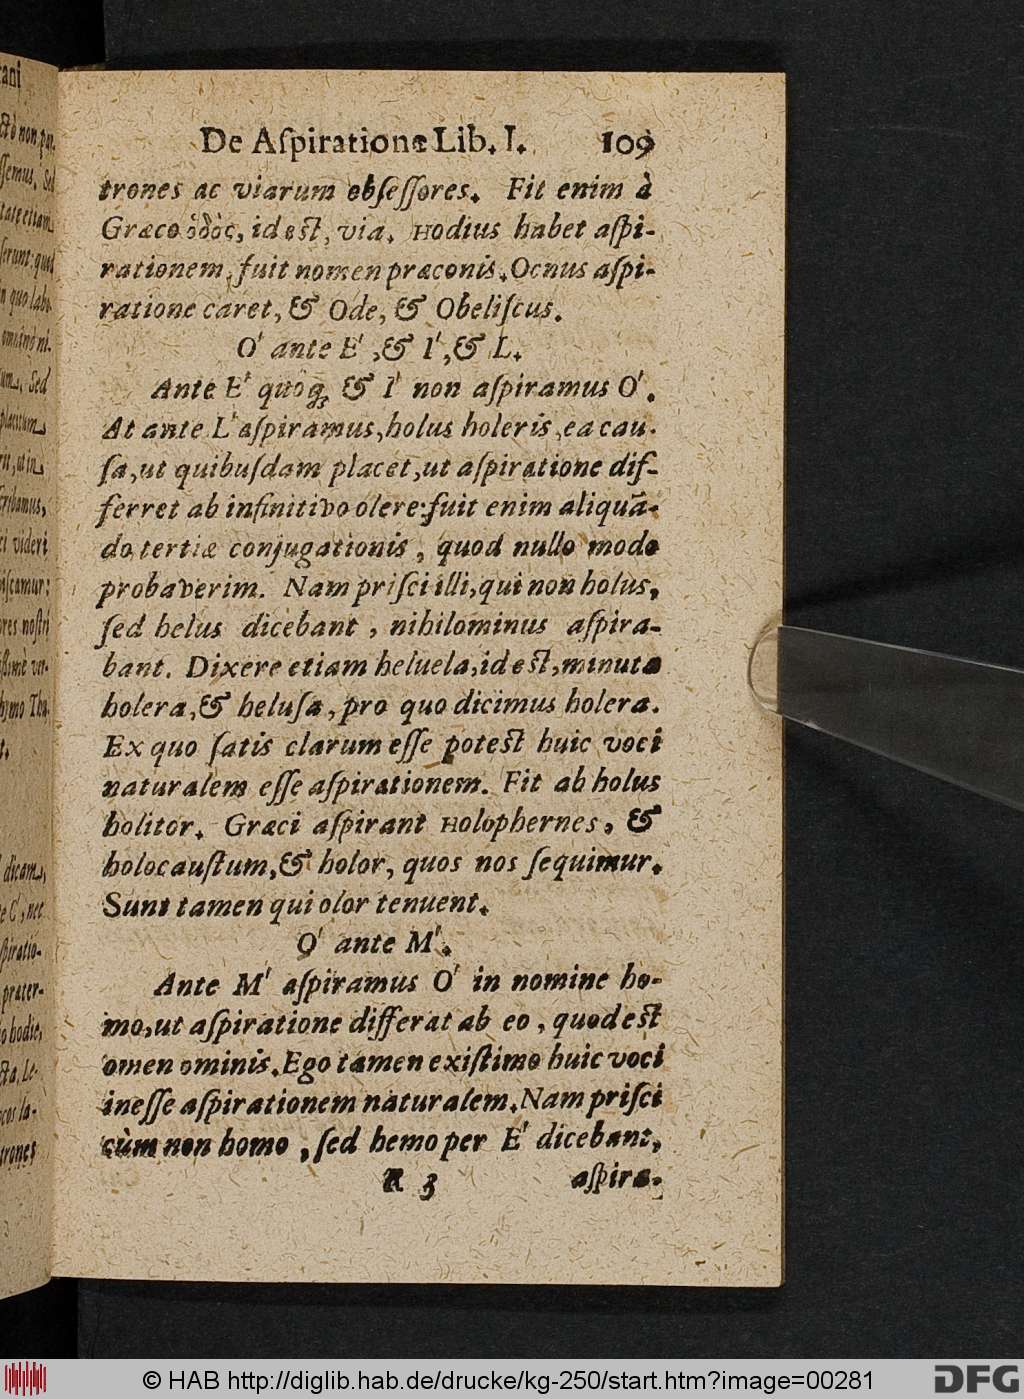 De Aſpiratione Lib. I. 109
trones ac viarum obſeſſores. Fit enim à
Græco ὁδὸς, id est, via. Hodius habet aſpi-
rationem, fuit nomen præconis. Ocnus aſpi-
ratione caret, & Ode, & Obeliſcus.
O' ante E', & I', & L.
Ante E' quoq; & I' non aſpiramus O'.
At ante L' aſpiramus, holus holeris, ea cau-
ſa, ut quibuſdam placet, ut aſpiratione dif-
ferret ab infinitivo olere: fuit enim aliquā-
do tertiæ conjugationis, quod nullo modo
probaverim. Nam priſci illi, qui non holus,
ſed helus dicebant, nihilominus aſpira-
bant. Dixere etiam heluela, id est, minuta
holera, & heluſa, pro quo dicimus holera.
Ex quo ſatis clarum eſſe potest huic voci
naturalem eſſe aſpirationem. Fit ab holus
holitor. Græci aſpirant Holophernes, &
holocauſtum, & holor, quos nos ſequimur.
Sunt tamen qui olor tenuent.
O' ante M'.
Ante M' aſpiramus O' in nomine ho-
mo, ut aſpiratione differat ab eo, quod est
omen ominis. Ego tamen exiſtimo huic voci
ineſſe aſpirationem naturalem. Nam priſci
cùm non homo, ſed hemo per E' dicebant,
R 3 aſpira-
© HAB http://diglib.hab.de/drucke/kg-250/start.htm?image=00281
DFG